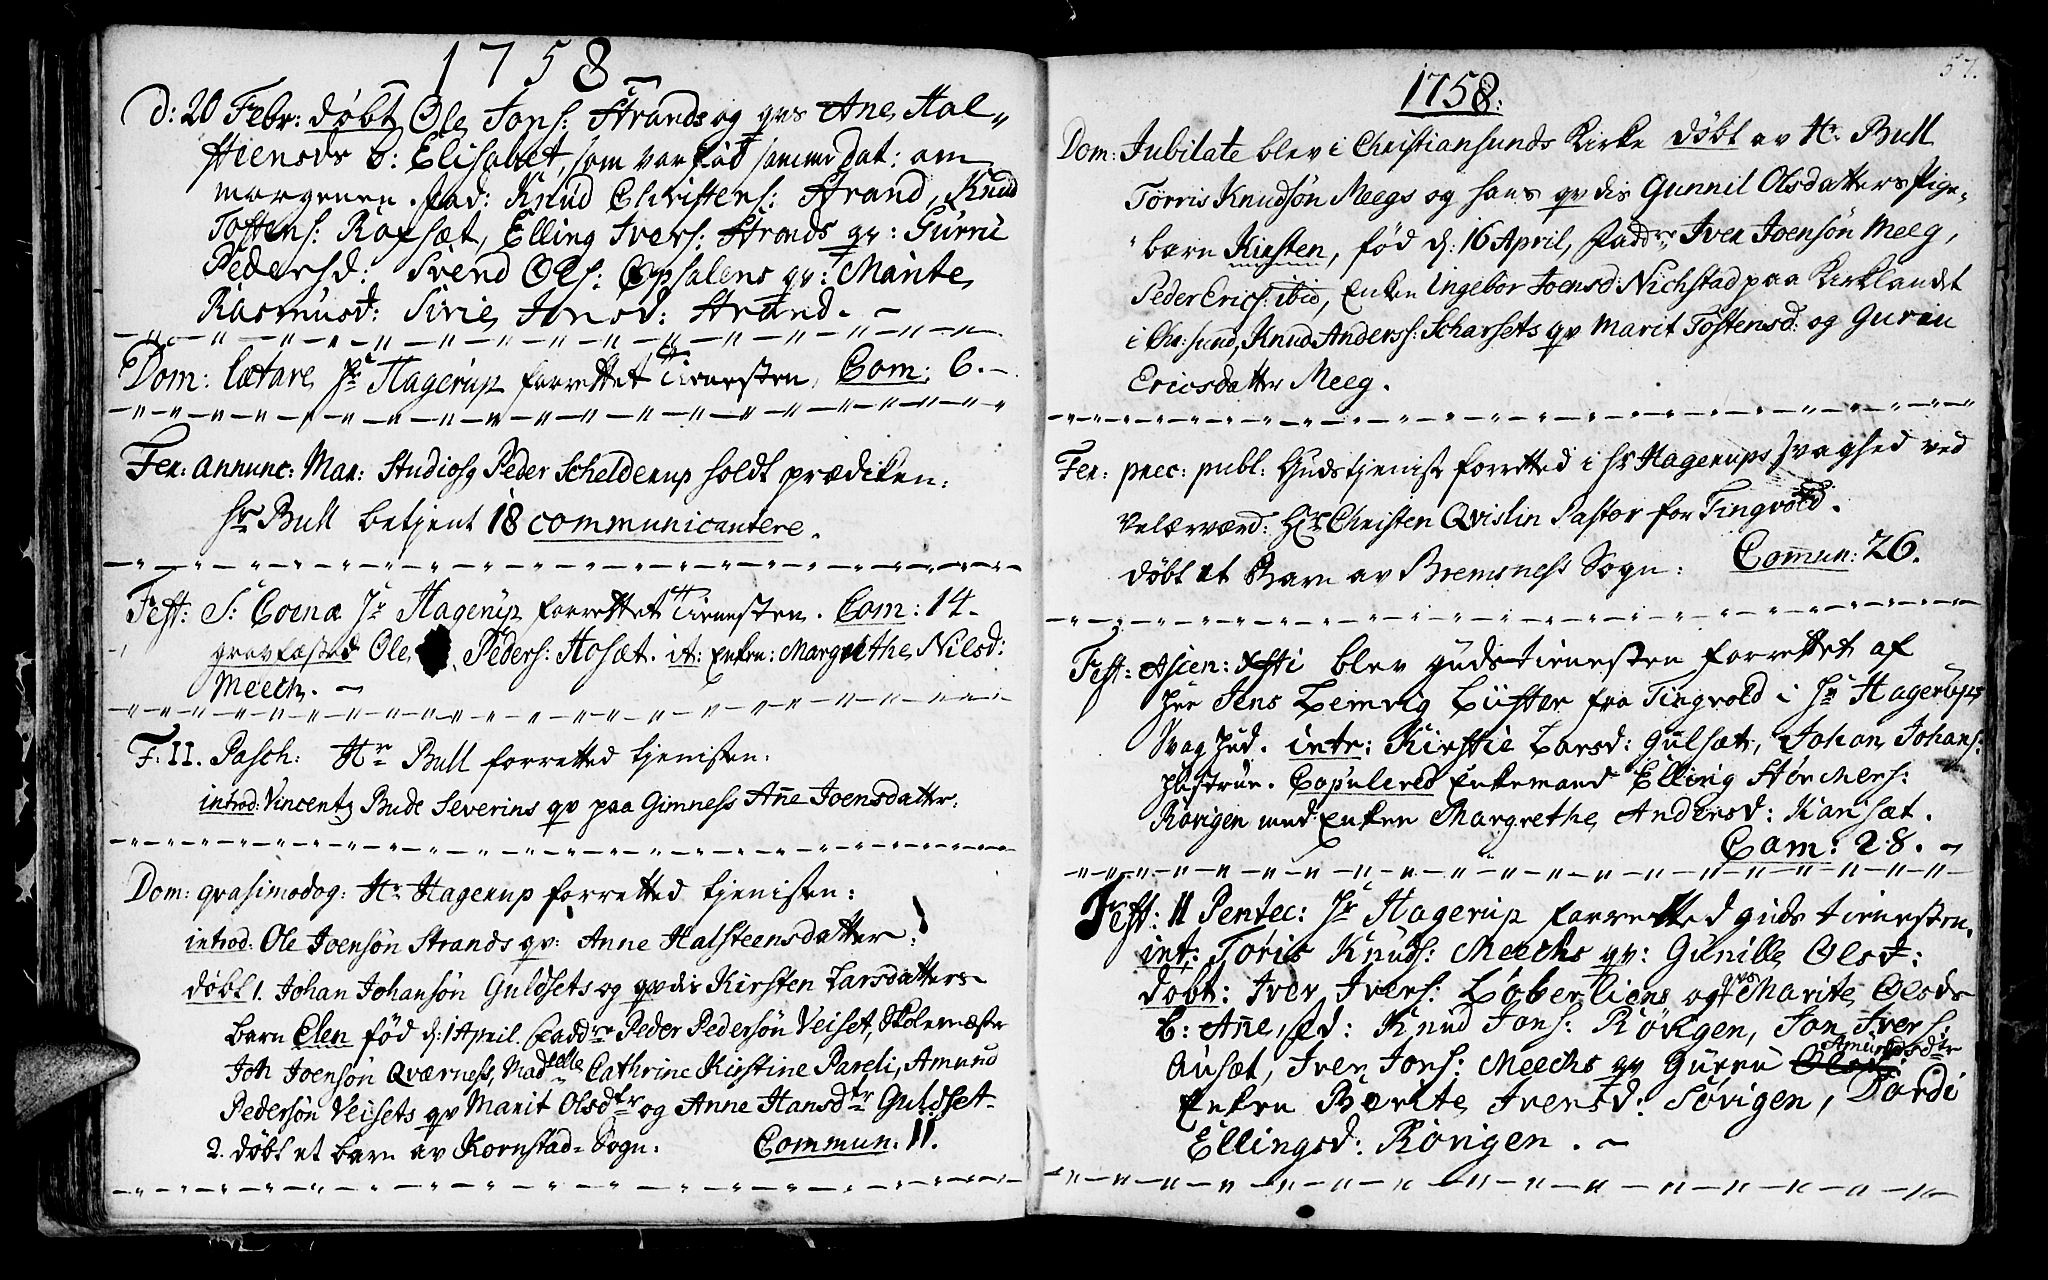 1758
D: 20 Febr: døbt Ole Jons: Strands og qvs Ane Hal-
stiensds b: Elisabet, som var fød samme dat: om
morgenen. fad: Knud Christens: Strand, Knud
Tostens: Røfsæt, Elling Ivers: Strands qv: Gurru
Pedersd: Svend Ols: Opsalens qv: Marite
Rasmusd: Sirie Jonsd: Strand.
Dom: lætare Hr Hagerup forrettet Tienesten. Com: 6.
Fer: annunc: Mar: Studiosq Peder Schelderup holdt prædiken.
Hr Bull betjent 18 communicantere.
Fest: S: Coena Hr Hagerup forrettet Tienesten. Com: 14
gravfæsted Ole Peders: Hosæt. it: Enken: Margrethe Nilsd:
Meech.
F. II. Pasch: Hr Bull forretted tjenisten:
introd: Vincentz Bude Severins qv paa Gimness Añe Joensdatter.
Dom: qvasimodog: Hr Hagerup forretted tjenisten:
introd: Ole Joensøn Strands qv: Anne Halsteensdatter:
døbt 1. Johan Johansøn Guldsets og qvdis Kirsten Larsdatters
barn Elen fød d: 1 April. Faddre Peder Pedersøn Veiset, Skolemester
Joh Joensøn Qværness, Madselle Cathrine Kirstine Pareli, Amund
Pedersøn Veisets qv Marit Olsdtr og Anne Hansdtr Guldset
2. døbt et barn av Kornstad-Sogn: Commun: 11.
57.
1758:
Dom: Jubilate blev i Christiansunds Kirke døbt av Hr Bull
Tørris Knudsøn Meegs og hans qvdis Gunnil Olsdatters Pige-
barn Kirsten, fød d: 16 April, Faddre Iver Joensøn Meeg,
Peder Erics: ibid, Enken Ingebor Joensd: Nichstad paa Kirklandet
i Chr:sund, Knud Anderss: Scharsets qv Marit Tostensd: og Guren
Ericsdatter Meeg.
Fer: prec: publ: Gudstjenist forretted i Hr Hagerups svaghed ved
Velærværd: Hr Christen Qvislin Pastor for Tingvold.
døbt et Barn av Bremsness Sogn: Commun: 26.
Fest: Ascen: Xsti blev gudstienesten forrettet af
Her Jens Lemvig Lüster fra Tingvold i Hr Hagerups
Svaghed. intr: Kirstie Larsd: Gulsæt, Johan Johans:
Hustrue. Copulered Enkemand Elling Størchers:
Rørigen med Enken Margrethe Andersd: Karisæt.
Com: 28.
Fest: II Pentec: Hr Hagerup forretted gudstienesten.
int: Toris Knuds: Meechs qv: Gunille Olsd:
døbt: Iver Ivers: Løberliens og qvs Marite Olsds
b: Añe, fd: Knud Jons: Rørigen, Jon Ivers:
Ausæt, Iver Jons: Meechs qv Gurru Amundsdtr
Enken Berite Iversd: Sørigen, Dordi
Ellingsd: Rørigen.